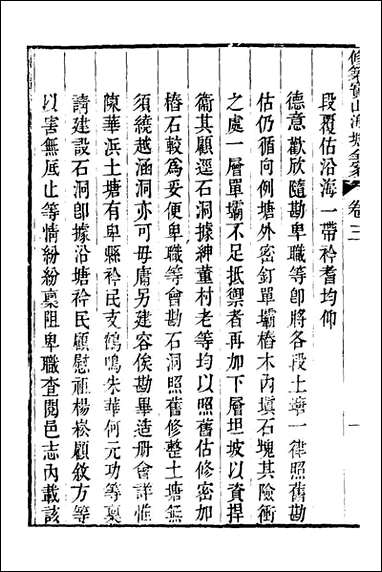 修築寶山海塘全案
卷三
一
段覆估沿海一帶衿耆均仰
德意歡欣隨勘卑職等卽將各段土塘一律照舊勘
估仍循向例塘外密釘單壩樁木內填石塊其險衝
之處一層單壩不足抵禦者再加下層坦坡以資捍
衛其顧逕石洞據紳董村老等均以照舊估修密加
樁石較爲妥便卑職等會勘石洞照舊修整土塘無
須繞越涵洞亦可毋庸另建容俟勘畢造册會詳惟
陳華浜土塘有卑縣衿民支鶴鳴朱華何元功等稟
請建設石洞卽據沿塘衿民顧慰祖楊崧顧敘方等
以害無底止等情紛紛稟阻卑職查閱邑志內載該